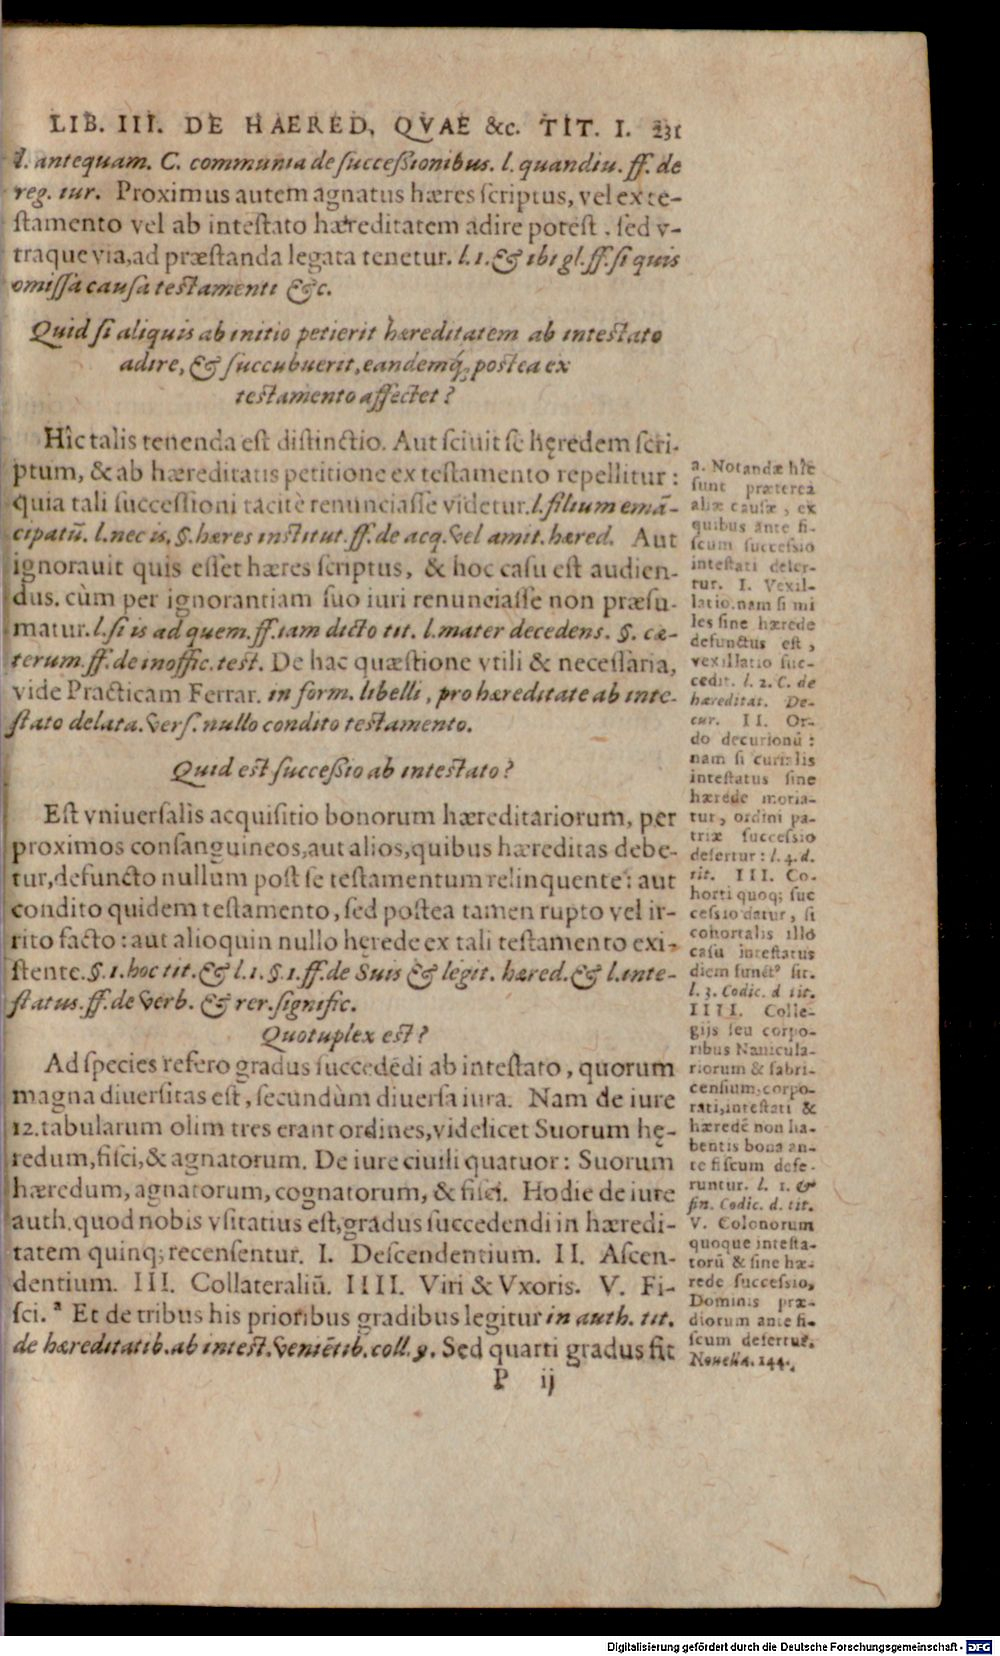 LIB. III. DE HAERED, QVAE &c. TIT. I. 231
l. antequam. C. communia de successionibus. l. quandiu. ff. de
reg. iur. Proximus autem agnatus hæres scriptus, vel ex te-
stamento vel ab intestato hæreditatem adire potest. sed v-
traque via, ad præstanda legata tenetur. l. 1. & ibi gl. ff. si quis
omissa causa testamenti &c.
Quid si aliquis ab initio petierit hæreditatem ab intestato
adire, & succubuerit, eandemq́; postea ex
testamento affectet?
Hîc talis tenenda est distinctio. Aut sciuit se hęredem scri-
ptum, & ab hæreditatis petitione ex testamento repellitur:
quia tali successioni tacitè renunciasse videtur. l. filium emã-
cipatũ. l. nec is. §. hæres institut. ff. de acq. vel amit. hæred. Aut
ignorauit quis esset hæres scriptus, & hoc casu est audien-
dus. cùm per ignorantiam suo iuri renunciasse non præsu-
matur. l. si is ad quem. ff. iam dicto tit. l. mater decedens. §. cæ-
terum. ff. de inoffic. test. De hac quæstione vtili & necessaria,
vide Practicam Ferrar. in form. libelli, pro hæreditate ab inte-
stato delata. vers. nullo condito testamento.
Quid est successio ab intestato?
Est vniuersalis acquisitio bonorum hæreditariorum, per
proximos consanguineos, aut alios, quibus hæreditas debe-
tur, defuncto nullum post se testamentum relinquente: aut
condito quidem testamento, sed postea tamen rupto vel ir-
rito facto: aut alioquin nullo hęrede ex tali testamento exi-
stente. §. 1. hoc tit. & l. 1. §. 1. ff. de Suis & legit. hæred. & l. inte-
status. ff. de verb. & rer. signific.
Quotuplex est?
Ad species refero gradus succedēdi ab intestato, quorum
magna diuersitas est, secundùm diuersa iura. Nam de iure
12. tabularum olim tres erant ordines, videlicet Suorum hę-
redum, fisci, & agnatorum. De iure ciuili quatuor: Suorum
hæredum, agnatorum, cognatorum, & fisci. Hodie de iure
auth. quod nobis vsitatius est, gradus succedendi in hæredi-
tatem quinq; recensentur. I. Descendentium. II. Ascen-
dentium. III. Collateraliũ. IIII. Viri & Vxoris. V. Fi-
sci.ᵃ Et de tribus his prioribus gradibus legitur in auth. tit.
de hæreditatib. ab intest. veniētib. coll. 9. Sed quarti gradus fit
P ij
a. Notandæ hîc
sunt præterea
aliæ causæ, ex
quibus ante fi-
scum successio
intestati defer-
tur. I. Vexil-
latio. nam si mi
les sine hærede
defunctus est,
vexillatio suc-
cedit. l. 2. C. de
hæreditat. De-
cur. II. Or-
do decurionũ:
nam si curialis
intestatus sine
hærede moria-
tur, ordini pa-
triæ successio
defertur: l. 4. d.
tit. III. Co-
horti quoq; suc
cessio datur, si
cohortalis illo
casu intestatus
diem functꝰ sit.
l. 3. Codic. d tit.
IIII. Colle-
gijs seu corpo-
ribus Nauicula-
riorum & fabri-
censium, corpo-
rati, intestati &
hæredē non ha-
bentis bona an-
te fiscum defe-
runtur. l. 1. &
fin. Codic. d. tit.
V. Colonorum
quoque intesta-
torũ & sine hæ-
rede successio,
Dominis præ-
diorum ante fi-
scum defertur.
Nouella. 144.
Digitalisierung gefördert durch die Deutsche Forschungsgemeinschaft - DFG